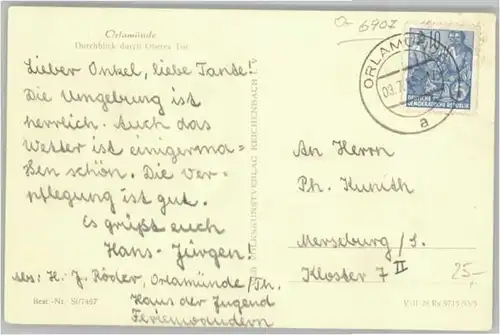 Orlamünde
Durchblick durch Oberes Tor
Lieber Onkel, liebe Tante!
Die Umgebung ist
herrlich. Auch das
Wetter ist einigerma=
ßen schön. Die Ver=
pflegung ist gut.
Es grüßt euch
Hans-Jürgen!
Abs: H.-J. Röder, Orlamünde/Th.
Haus der Jugend
Ferienwandern
Best.-Nr. SI/7467
VOLKSKUNSTVERLAG REICHENBACH i. V.
6902
ORLAMÜNDE
a
10
DEUTSCHE
DEMOKRATISCHE REPUBLIK
An Herrn
Ph. Kunith
Merseburg/S.
Kloster 7 II
25,-